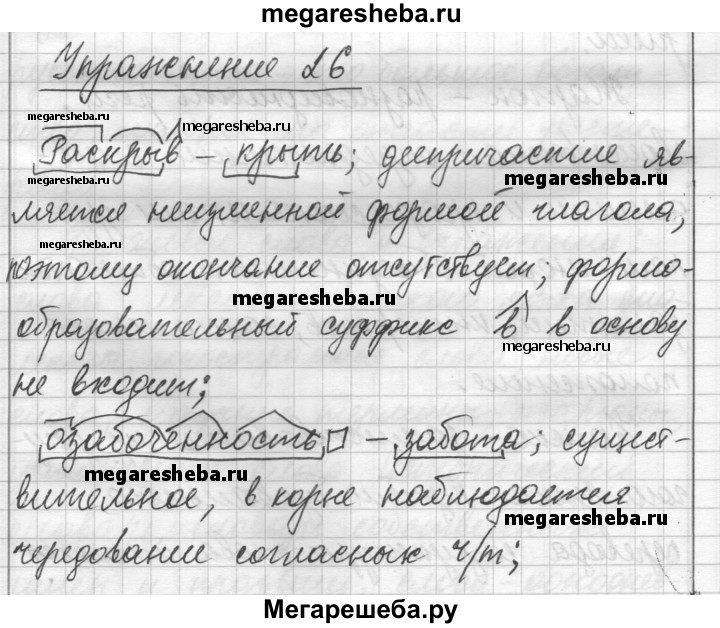 megaresheba.ru
Упражнение 26
megaresheba.ru
megaresheba.ru
Раскрыв – крыть; деепричастие яв-
megaresheba.ru
megaresheba.ru
ляется неизменной формой глагола,
megaresheba.ru
поэтому окончание отсутствует; формо-
megaresheba.ru
образовательный суффикс в в основу
megaresheba.ru
не входит;
озабоченность – забота; сущест-
megaresheba.ru
вительное, в корне наблюдается
megaresheba.ru
чередование согласных ч/т;
Мегарешеба.ру